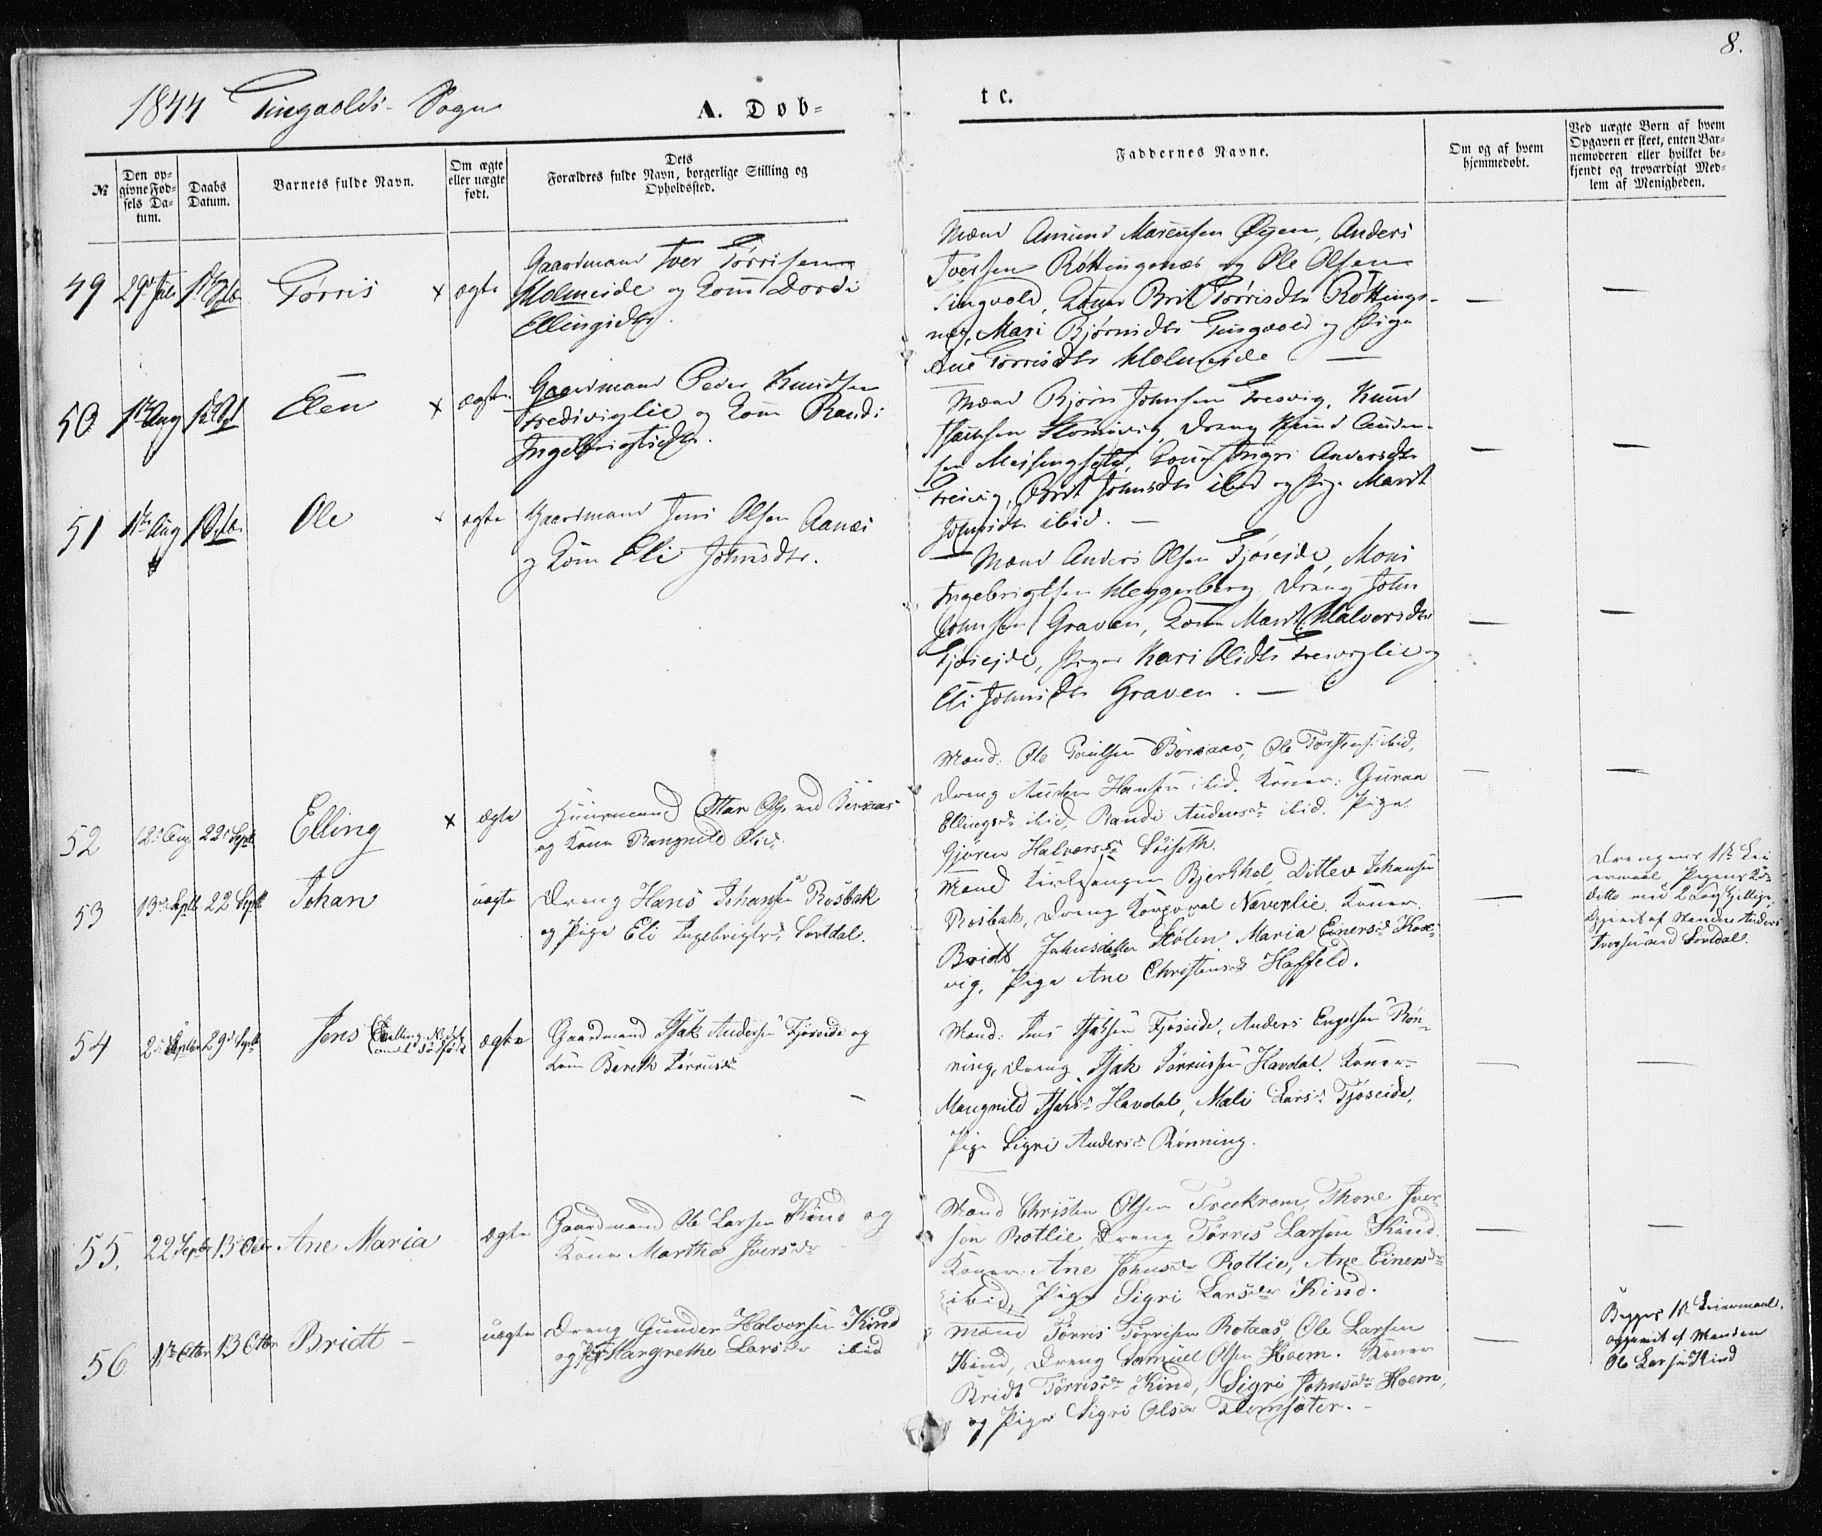 8.
1844 Tingvolds Sogn
A. Dob-
t e.
№
Den op-
givne Fød-
sels Da-
tum.
Daabs
Datum.
Barnets fulde Navn.
Om ægte
eller uægte
født.
Dets
Forældres fulde Navn, borgerlige Stilling og
Opholdssted.
Faddernes Navne.
Om og af hvem
hjemmedøbt.
Ved uægte Born af hvem
Opgaven er skeet, enten Bar-
nemoderen eller hvilket be-
kjendt og troværdigt Med-
lem af Menigheden.
49 29de Juli Tørris × ægte
Gaardmand Iver Tørrisen
Holmeide og Kone Dordi
Ellingsdtr.
Mænd Amund Øyen, Anders
Iversen Røttingsnæs og Ole Olsen
Tingvold, Koner Brit Tørrisdtr Røttings-
næs, Mari Bjørnsdtr Tingvold og Pige
Ane Tørrisdtr Holmeide —
50 1ste Aug Elen × ægte.
Gaardmand Peder Knudsen
og Kone Randi
Ingebrigtsdtr.
Mænd Bjørn Johnsen Knud
Dreng Knud
Kone Ingri Andersdtr
Brit Johnsdtr ibid og Pige Marit
Johnsdtr ibid. —
51 11te Aug Ole × ægte
Gaardmand Jens Olsen Aanæs
og Kone Eli Johnsdtr.
— Mænd Anders Olsen Fjøseide, Mons
Ingebrigtsen Heggerberg, Dreng John
Johnsen Graven, Kone Marit Halvorsdtr
Fjøseide, Piger Kari Olsdtr og
Eli Johnsdtr Graven. —
52 Aug 22 Septb Elling × ægte
Huusmand Ottar Ols. ved Bersaas
og Kone Rangnild Olsd.
Mænd: Ole Paulsen Bersaas, Ole Torstens. ibid,
Dreng Auden Hansen ibid. Koner: Guraa
Ellingsdr ibid, Randi Andersdr ibid. Pige
Gjøren Halvorsdr Sôiseth.
53 13de Septb 22 Septb Johan uægte
Dreng Hans Johansen Rosbak
og Pige Eli Ingebrigtsd. Sortdal.
Mænd Kirkesanger Bjerkhol, Ditlev Johansen
Rosbak, Dreng Korporal Naverlie. Koner:
Bridt Johnsdatter Stølen, Maria Einersdr
vig, Pige Ane Christensdr Haffeld.
Drengens 1ste Lei
ermaal Pigens 2det
Ditto
Opgivet af Manden Anders
Iversen ved Sortdal.
54 2den Septbr 29de Septb Jens ægte
Gaardmand Isak Andersen Fjøseide og
Kone Bereth Tørrisdr
Mænd: Jens Isaksen Fjøseide, Anders Engelsen Røn-
ning, Dreng Isak Tørrissen Havdal. Koner
Mangnild Isaksdr Havdal, Mali Larsdr Fjøseide,
Pige Sigri Andersdr Rønning.
55. 22 Septbr 13de Octbr Ane Maria ægte
Gaardmand Ole Larsen Kind og
Kone Martha Iversdr
Mænd Christen Olsen Treekrem, Thore Iver-
sen Rotlie, Dreng Tørris Larsen Kind.
Koner: Ane Johnsdr Rotlie, Ane Einersdr
ibid, Pige Sigri Larsdr Kind.
56 1ste Octbr 13 Octbr Bridt — uægte
Dreng Gunder Halvorsen Kind
og Pige Margrethe Larsdr ibid
Mænd Tørris Tørrisen Rotaas, Ole Larsen
Kind, Dreng Samuel Olsen Hoem. Koner
Bridt Tørrisdr Kind, Sigri Johnsdr Hoem,
og Pige Sigri Olsdr Flemsæter. —
Begges 1ste Leiermaal,
opgivet af Manden
Ole Larsen Kind